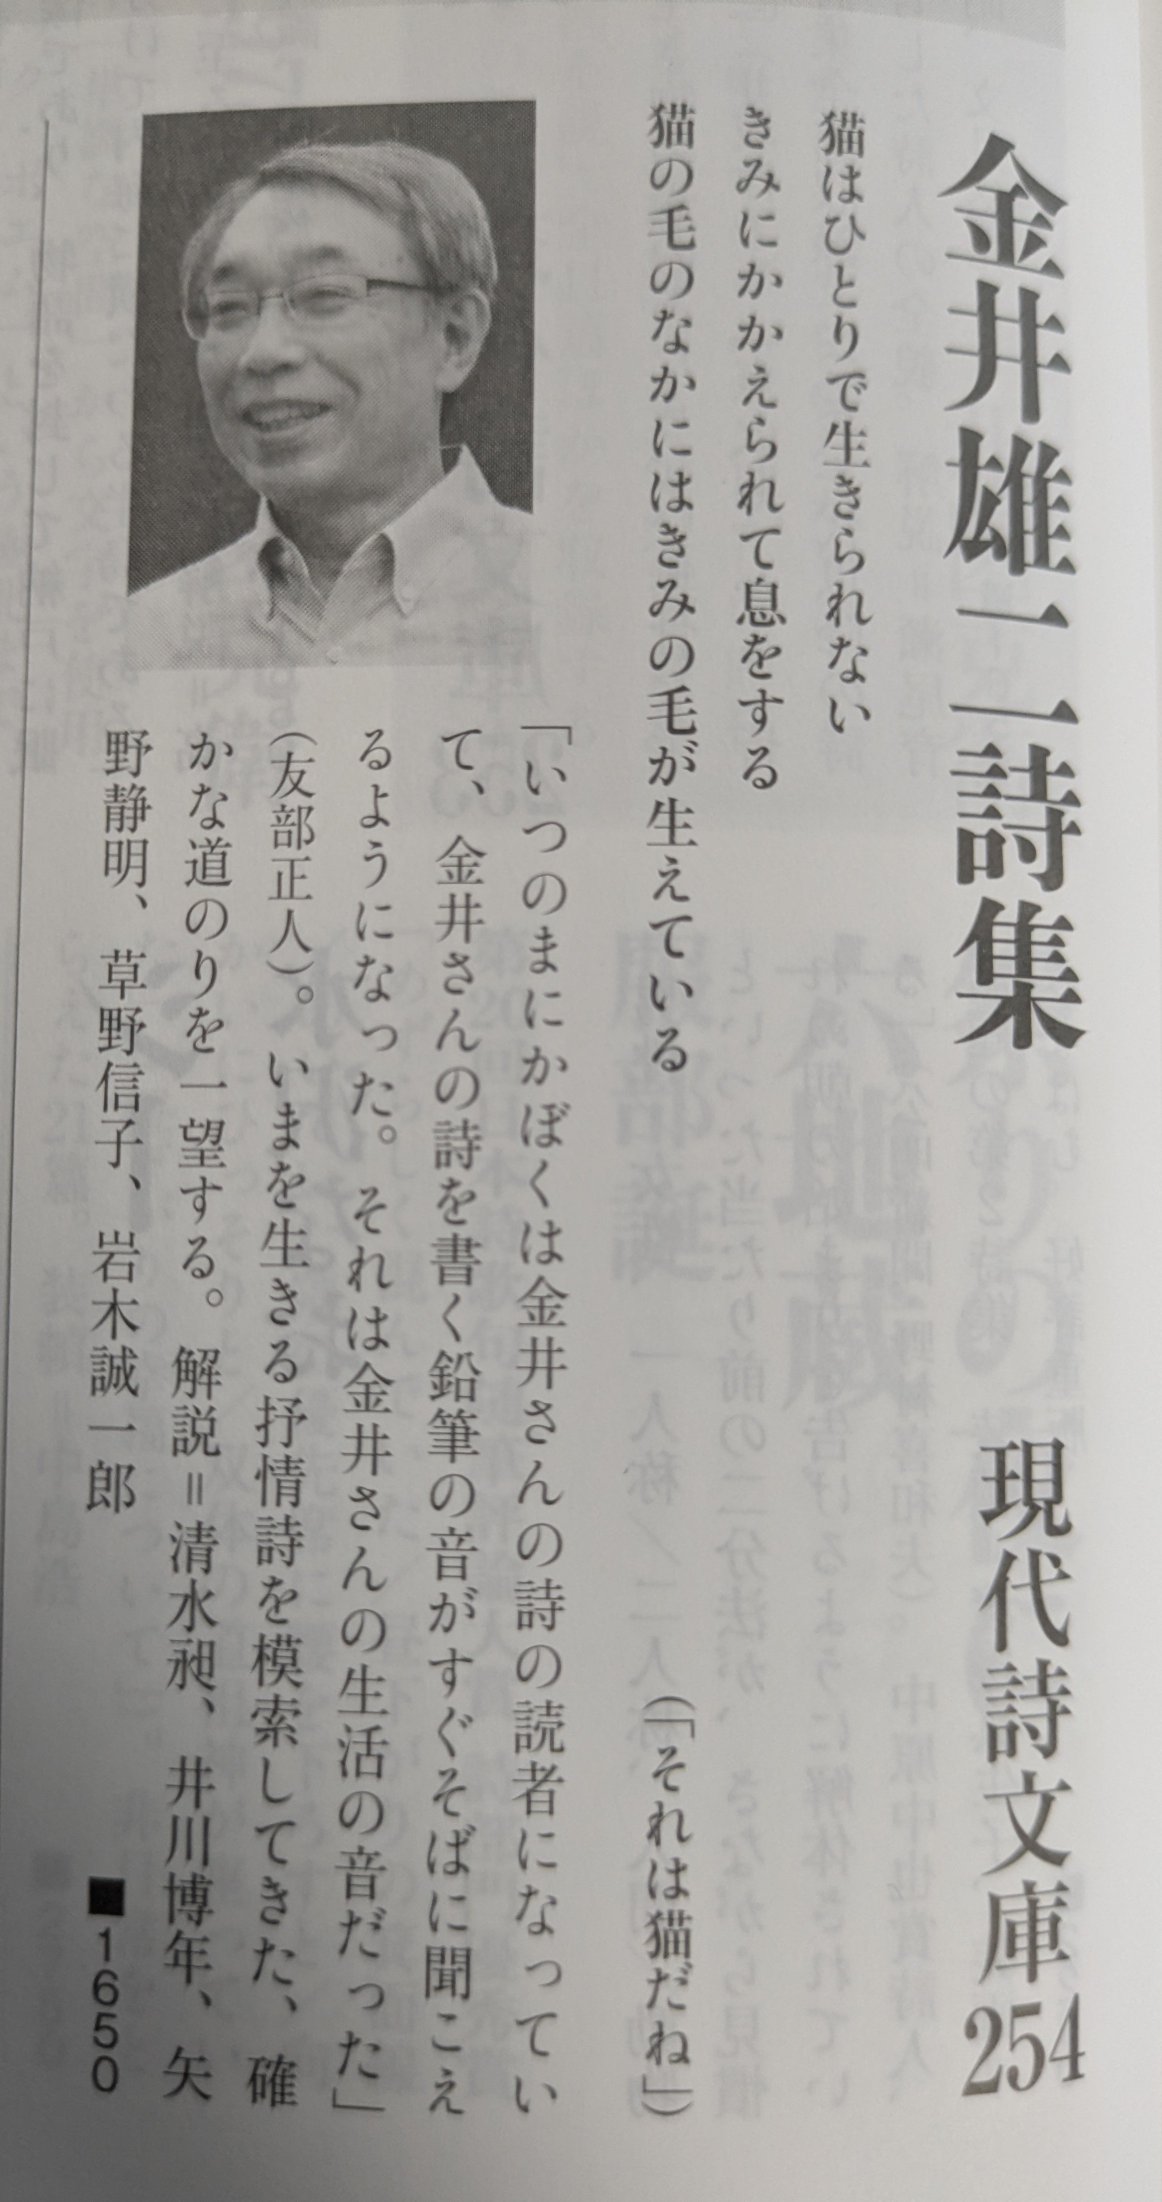 金井雄二詩集　現代詩文庫254
猫はひとりで生きられない
きみにかかえられて息をする
猫の毛のなかにはきみの毛が生えている
（「それは猫だね」）
「いつのまにかぼくは金井さんの詩の読者になってい
て、金井さんの詩を書く鉛筆の音がすぐそばに聞こえ
るようになった。それは金井さんの生活の音だった」
（友部正人）。いまを生きる抒情詩を模索してきた、確
かな道のりを一望する。解説＝清水昶、井川博年、矢
野静明、草野信子、岩木誠一郎
■1650